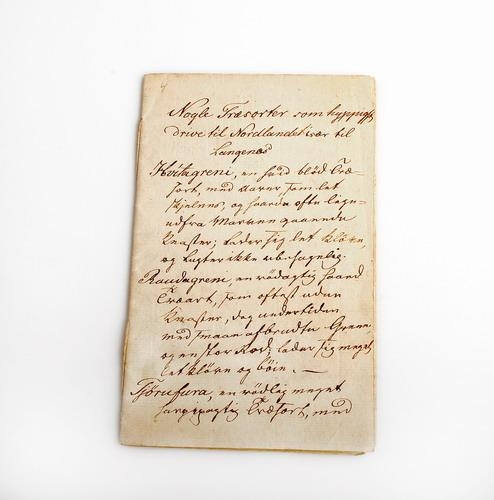 Nogle Træsorter som hyppigst
drive til Nordlandet især til
Langenæs
Hvítagreni, en hvid blød Træ-
sort, med Aarer, som let
skjelnes, og haarde ofte lige
ud fra Marven gaaende
Knaster; lader sig let kløve,
og lugter ikke ubehagelig.
Raudagreni, en rødagtig haard
Træart, som oftest uden
Knaster, dog undertiden
med smaae afbrudte Grene
og en stor Rod; lader sig meget
let kløve og böie. —
Tjörufura, en rødlig meget
harpixagtig Træsort, med